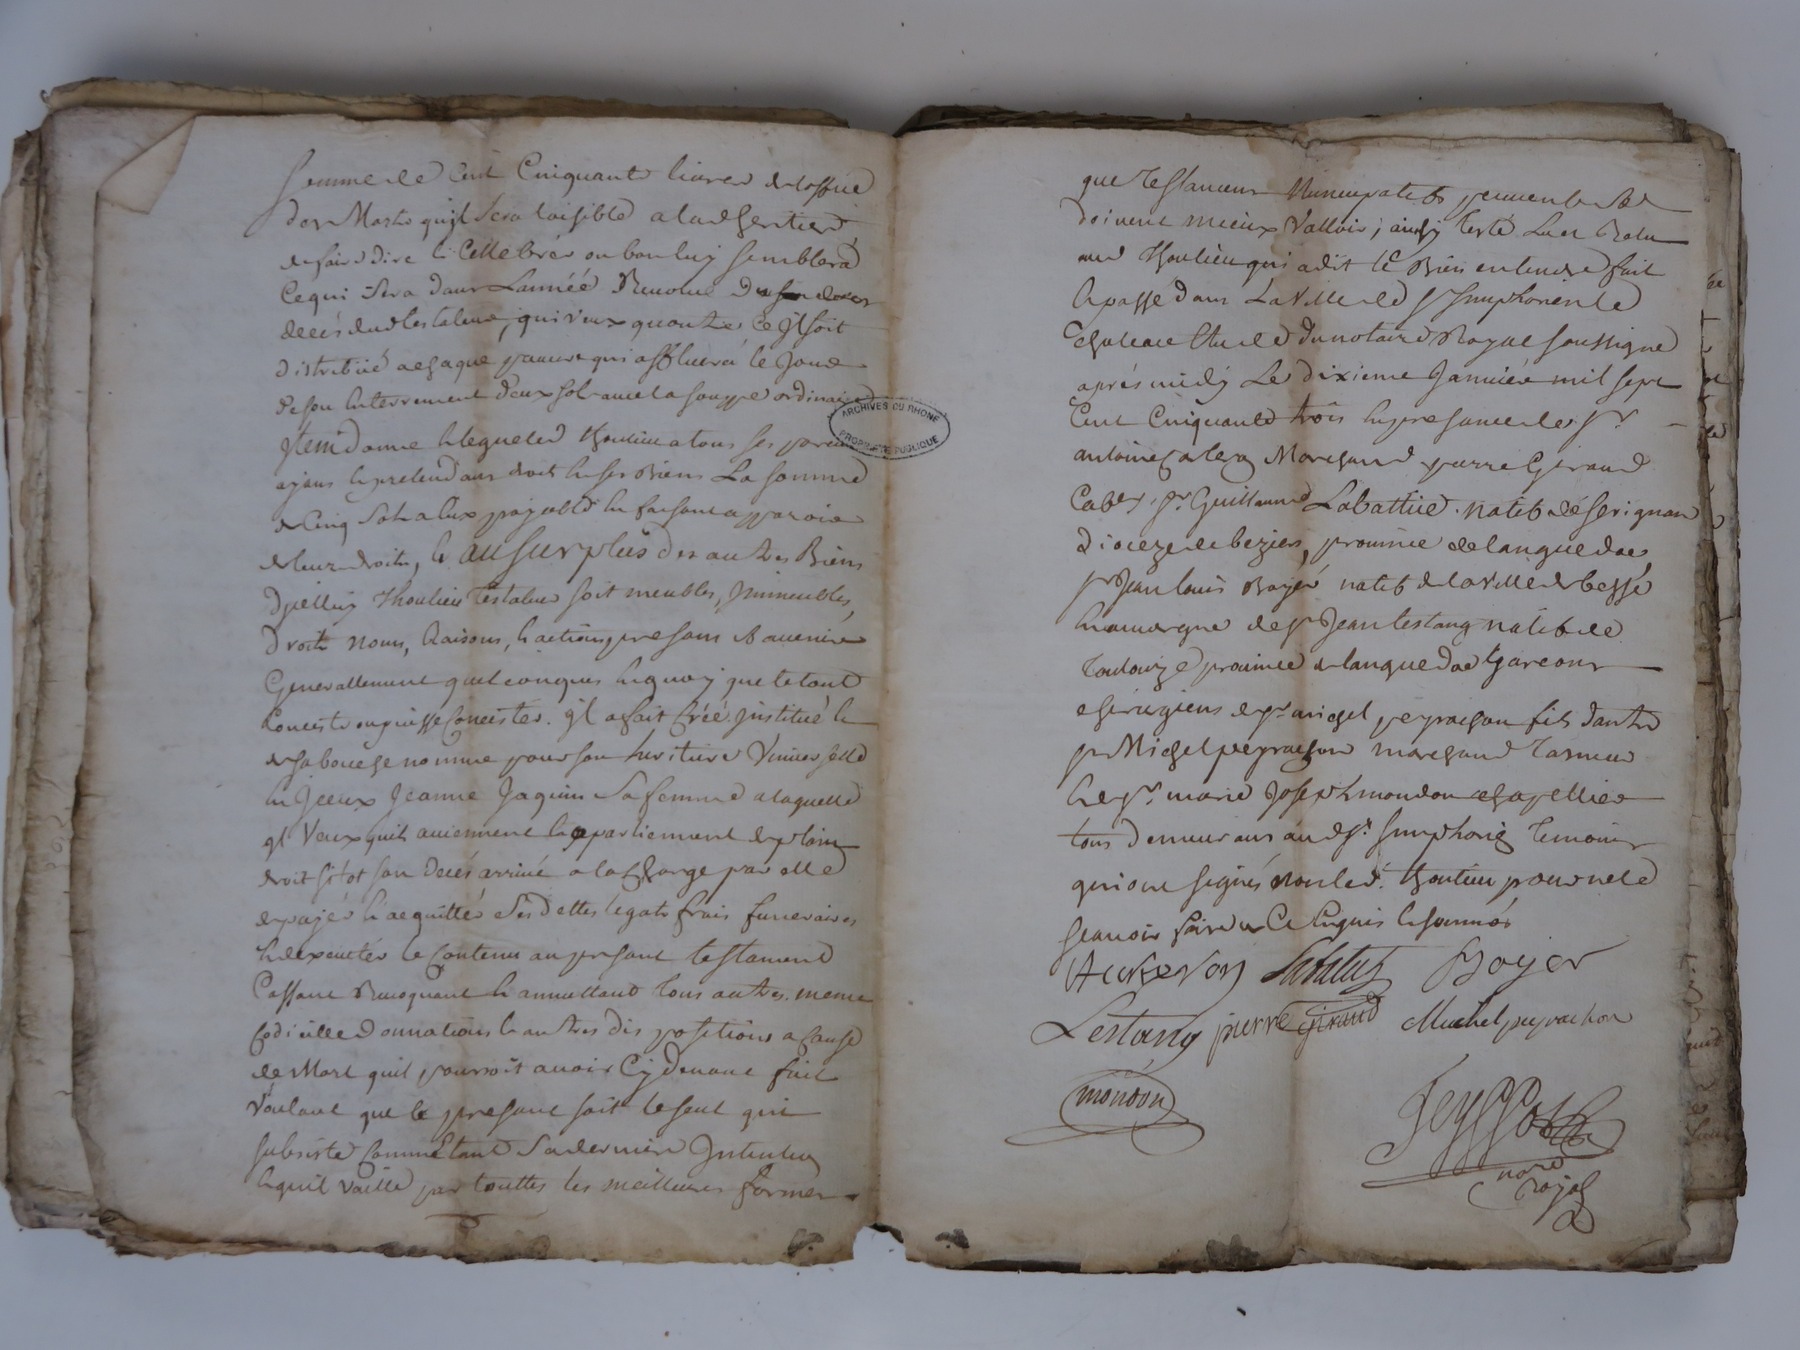 somme de Cent Cinquante livres
des Morts qu'il sera loisible a lad heritiere
de faire dire & Cellebrer ou bon luy semblera
Ce qui sera dans Lannéé
decés dud testateur, qui veux quoutre Ce Il soit
distribüé a chaque pauure qui affluera le Jour
de son Enterrement deux sols auec la soupe ordinaire
ARCHIVES DU RHONE
PROPRIETE PUBLIQUE
Item donne & legue led Thoulieu a tous ses parens
ayans & pretendans droit sur ses Biens La somme
de Cinq sols a eux payable En faisant apparoir
de leurs droits, & au surplus des autres Biens
Dicelluy Thoulieu testateur soit meubles, Immeubles,
Droits Noms, Raisons, & actions presans & auenir
Generallement quelconques En quoy que le tout
Conciste ou puisse Concister. Il a fait Créé Institué &
de sa bouche nommé pour son heritiere Vniuerselle
Jeanne Jaquin Sa femme a laquelle
Il Veux quils auiennent & appartiennent de plain
droit sitot son Decés arriué a la Charge par elle
de payer & acquitter ses dettes legats frais funeraires
& dexecuter le Contenu au presant testament
Cassant Reuoquant & annullant tous autres. meme
Codicille donnations & autres dispositions a Cause
de Mort quil pourroit auoir Cy deuant fait
Voulant que le presant soit le seul qui
subsiste Comme Etant Sa derniere Intention
& quil vaille par touttes les meilleures formes
que testamens Nuncupatifs peuuent &
doiuent mieux Valloir; ainsy testé Lu et
aud Thoulieu qui a dit le Bien entendre fait
& passé dans La Ville de St Simphorien le
Chateau Etude du notaire Royal soussigné
aprés midy Le dixieme Januier mil sept
Cent Cinquante trois En presance de Sr
antoine Marchand pierre Giraud
Cabr. Sr Guillaume Labattüe. natif de serignan
dioceze de beziers, prouince de languedoc
Sr Jean louis Boyer natif de la Ville de bessé
En auuergne de Sr Jean lestang natif de
Toulouze prouince de languedoc Garçons
chirugiens de Sr michel peyrachon fils dautre
Sr Michel peyrachon marchand Tanneur
& de Sr. marie Joseph mondon chapellier
tous demeurans aud St. Simphorien temoins
qui ont signés non led. Thoulieu pour ne le
scauoir faire de Ce Enquis & sommé
Labatut Boyer
Lestang pierre giraud Michel peyrachon
mondon
Teyssot
nore
Royal